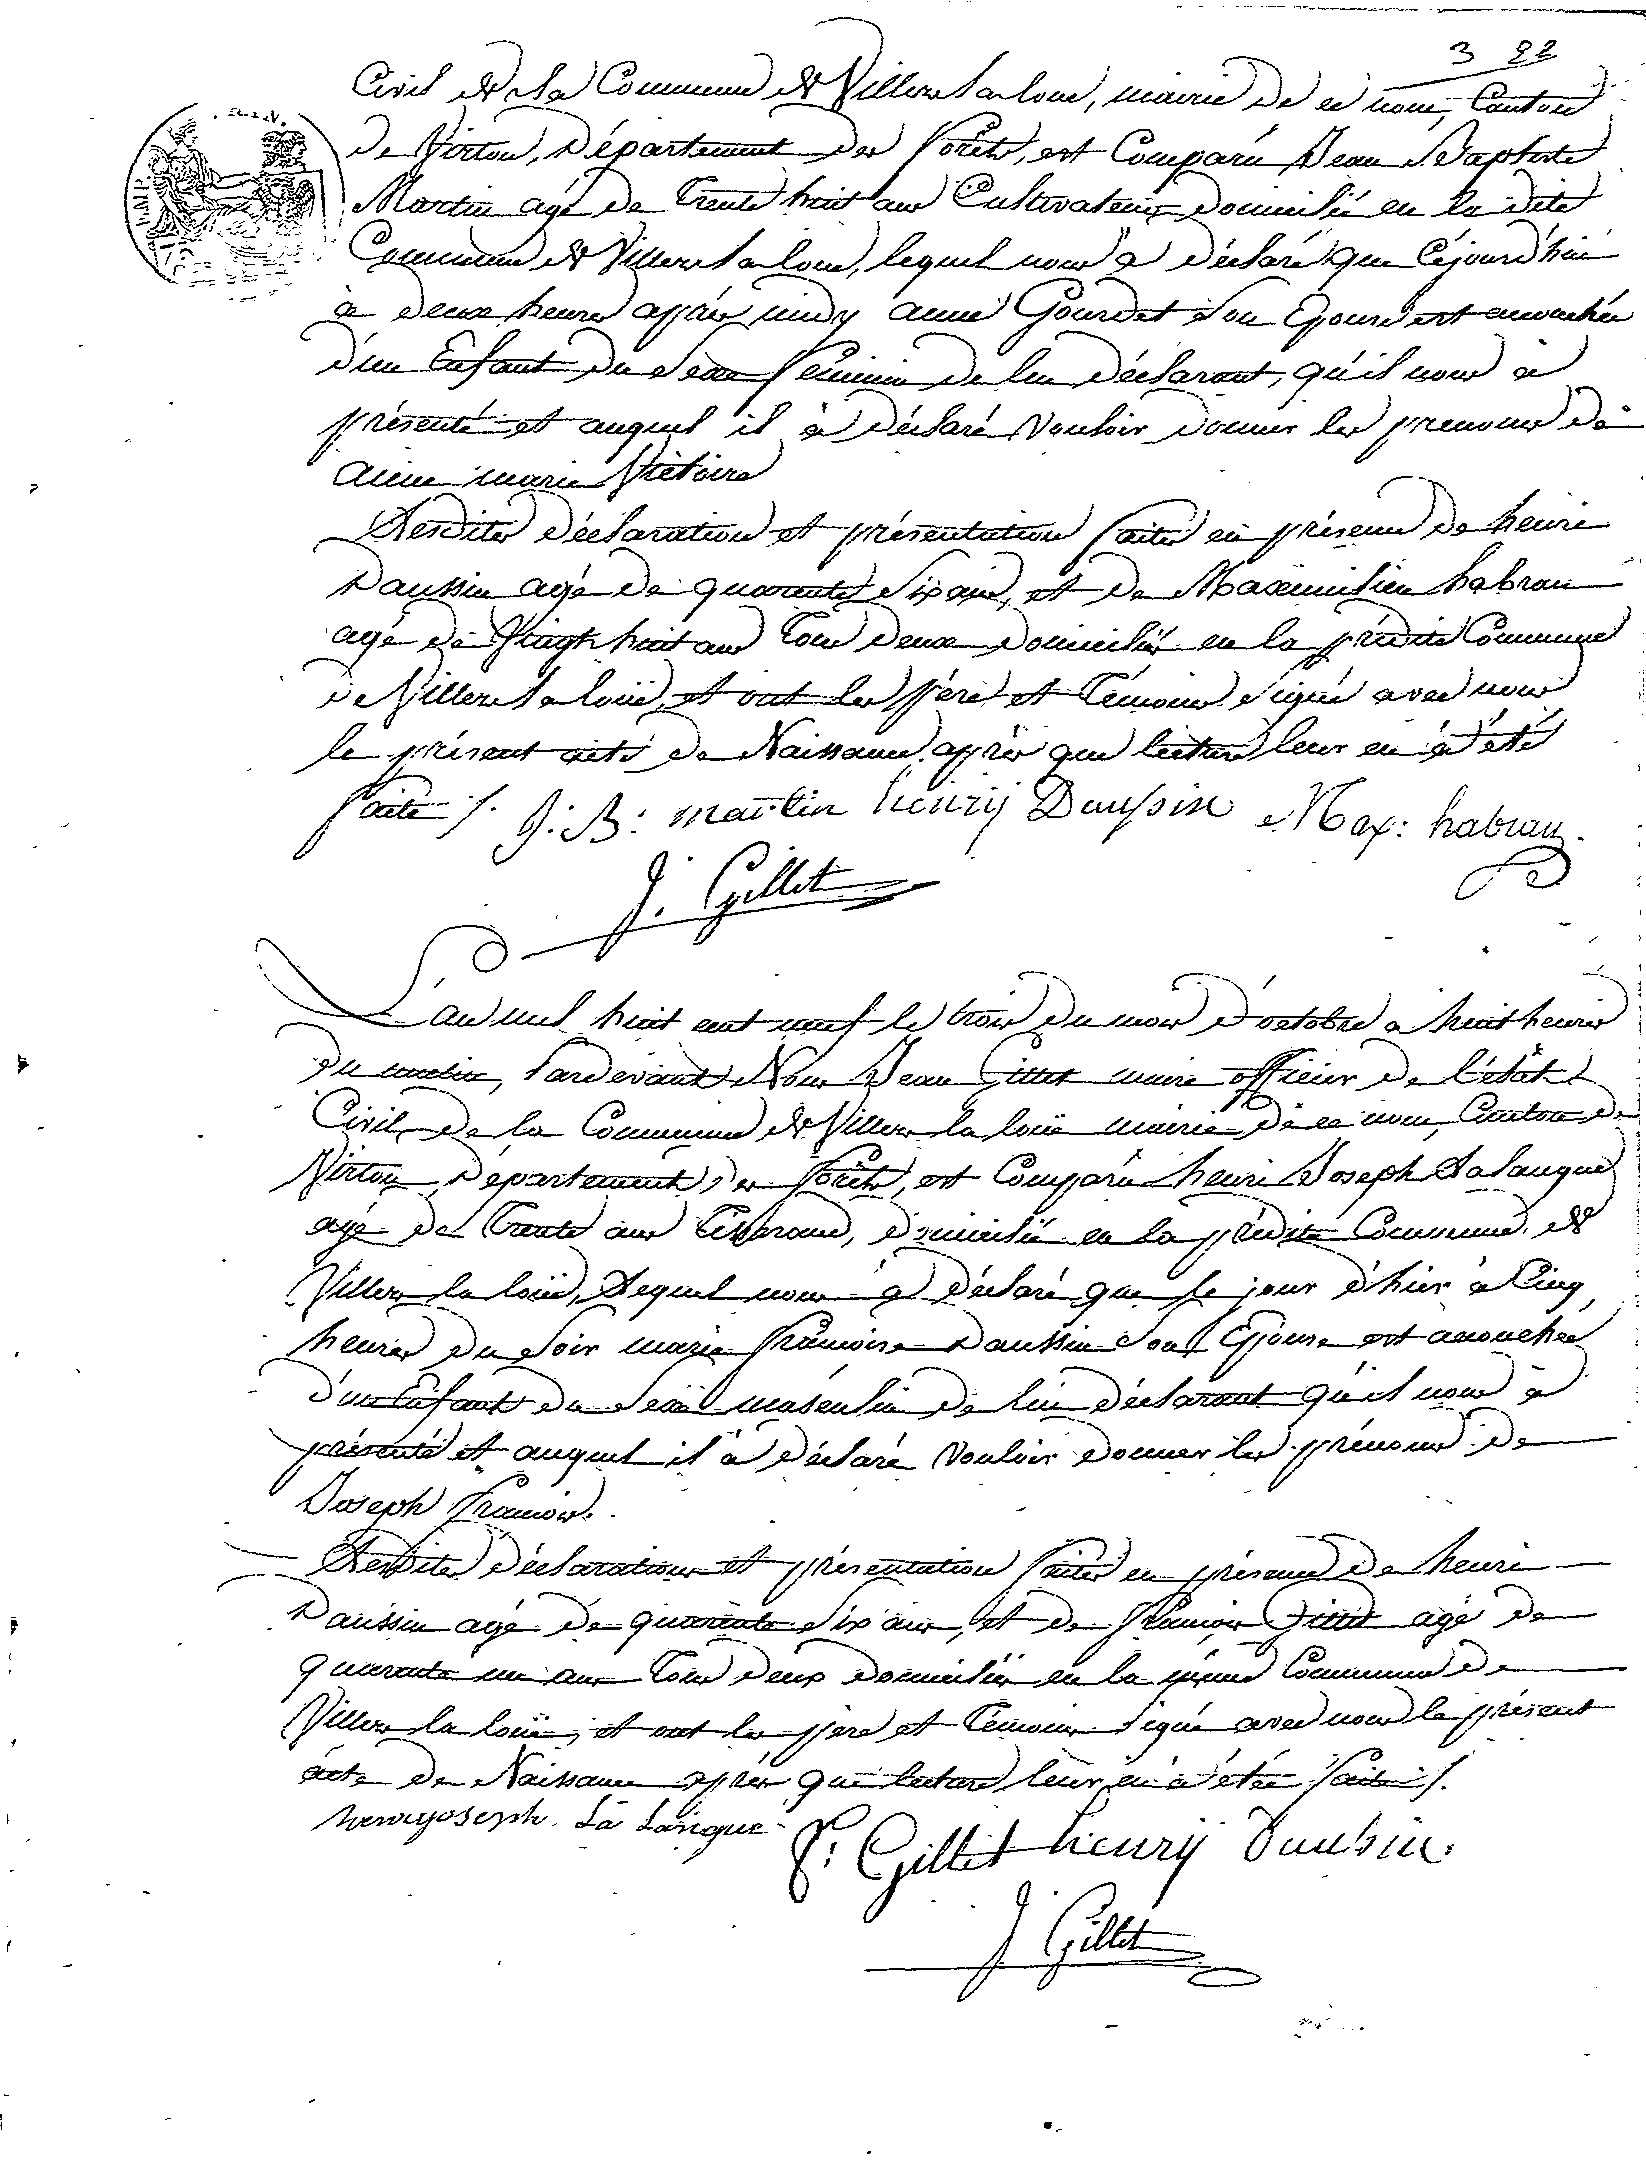 3 22
Civil de la Commune de Villers la loue, mairie de ce nom, Canton
de Virton, Département des forêts, est Comparu Jean Baptiste
Martin agé de Trente huit ans Cultivateur domicilié en la dite
Commune de Villers la loue, lequel nous a déclaré que Cejourd'hui
à deux heures après midy anne Gourdet son Epouse est accouchée
d'un Enfant du sexe féminin de lui déclarant, qu'il nous à
présenté et auquel il à déclaré vouloir donner les prenoms de
anne marie Victoire
Lesdites déclaration et présentation faites en présence de henri
Daussin agé de quarante Six ans, et de Maximilien habran
agé de Vingt huit ans Tous deux domiciliés en la prédite Commune
de Villers la loüe, et ont les père et Témoins signé avec nous
le présent acte de Naissance après que lecture leur en à été
faite /. J: B: martin henrij Daussin Max: habran.
J. Gillet
L'an mil huit cent neuf le trois du mois d'octobre a huit heures
du matin, Pardevant Nous Jean Gillet maire officier de l'état
Civil de la Commune de Villers la loüe mairie de ce nom, Canton de
Virton, Département des forêts, est Comparu henri Joseph Lalangue
agé de Trente ans Tisserand, domicilié en la prédite Commune de
Villers la loüe, Lequel nous a déclaré que le jour d'hier à Cinq
heures du Soir marie françoise Daussin son Epouse est accouchée
d'un Enfant du sexe masculin de lui déclarant qu'il nous à
présenté et auquel il à déclaré vouloir donner les prénoms de
Joseph françois.
Lesdites déclaration et présentation faites en présence de henri
Daussin agé de quarante Six ans, et de françois Gillet agé de
quarante un ans Tous deux domiciliés en la même Commune de
Villers la loüe, et ont les père et Témoins signé avec nous le présent
acte de Naissance après que lecture leur en à été faite /.
henryjoseph La Langue
F: Gillet henrij Daussin.
J Gillet